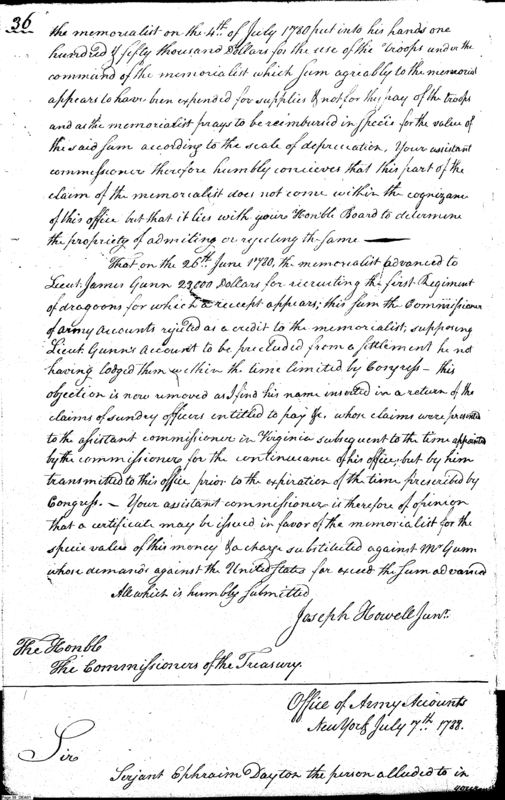 36
the memorialist on the 4th. of July 1780 put into his hands one
hundred & fifty thousand Dollars for the use of the Troops under the
command of the memorialist which sum agreably to the memorial
appears to have been expended for supplies & not for the pay of the troops
and as the memorialist prays to be reimbursed in specie for the value of
the said sum according to the scale of depreciation, Your assistant
commissioner therefore humbly concieves that this part of the
claim of the memorialist does not come within the cognizance
of this office but that it lies with your Honble Board to determine
the propriety of admiting or rejecting the same —
That on the 26th. June 1780, the memorialist advanced to
Lieut. James Gunn 23,000 Dollars for recruiting the first Regiment
of dragoons for which a receipt appears; this sum the Commissioner
of army Accounts rejected as a credit to the memorialist, supposing
Lieut. Gunn's Account to be precluded from a settlement he not
having lodged them within the time limited by Congress — this
objection is now removed as I find his name inserted in a return of the
claims of sundry officers entitled to pay &c, whose claims were presented
to the assistant commissioner in Virginia subsequent to the time appointed
by the commissioner for the continuance of his office, but by him
transmitted to this office prior to the expiration of the time prescribed by
Congress. — Your assistant commissioner is therefore of opinion
that a certificate may be issued in favor of the memorialist for the
specie value of this money & a charge substituted against Mr Gunn
whose demands against the United States far exceed the sum advanced
All which is humbly submitted
Joseph Howell Junr.
The Honble
The Commissioners of the Treasury.
Office of Army Accounts
New York July 7th. 1788.
Sir
Serjant Ephraim Dayton the person alluded to in